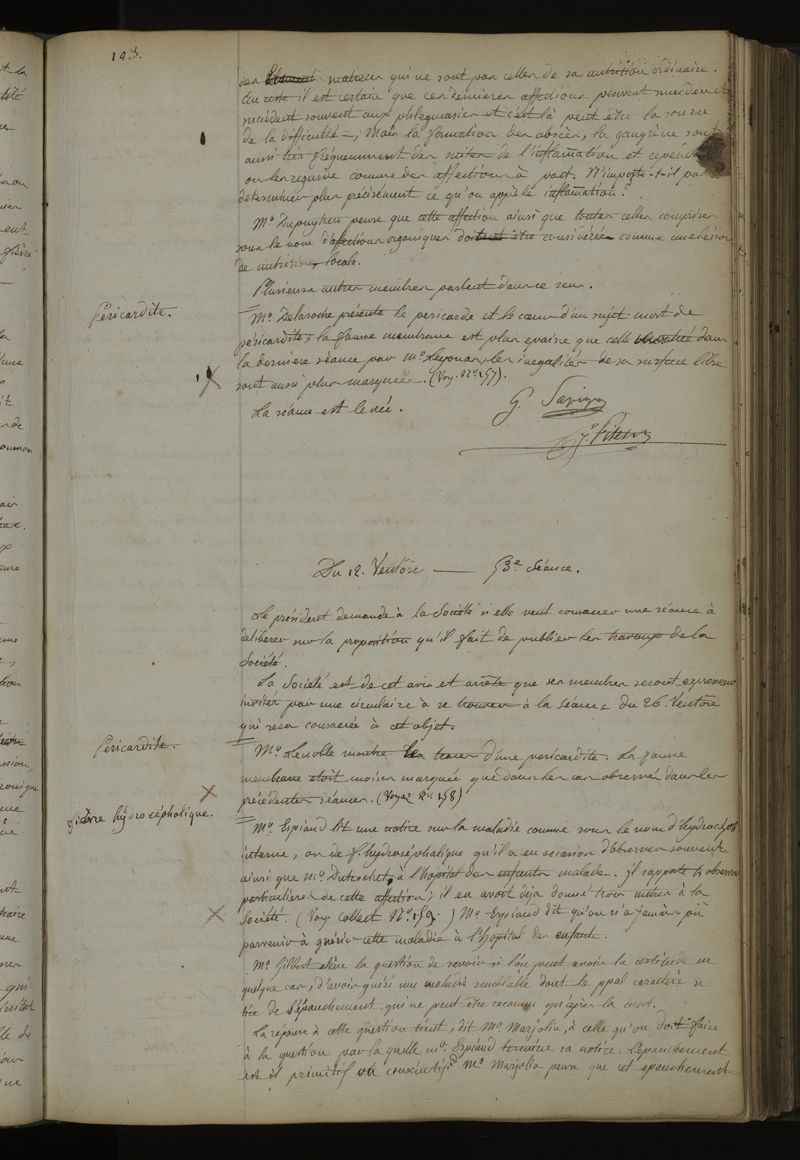 123.
des matieres qui ne sont pas celles de sa nutrition ordinaire.
Au reste il est certain que ces dernieres affections peuvent succeder et
succèdent souvent aux phlegmasies et c'est là peut être la source
de la difficulté ; Mais la formation des abscès, la gangrène sont
aussi très fréquemment des suites de l'inflam̄ation et cependant
on les regarde comme des affections à part. N'importe-t-il pas
déterminer plus précisément ce qu'on appèle inflam̄ation ?
Mr. Dupuytren pense que cette affection ainsi que toutes celles comprises
sous le nom d'affections organiques doivent être considérées comme une lésion
de nutrition locale.
Plusieurs autres membres parlent dans ce sens.
Péricardite.
Mr. Delaroche présente le pericarde et le cœur d'un sujet mort de
péricardite ; la fausse membrane est plus epaisse que celle observée dans
la derniere séance par Mr. les inegalités de sa surface libre
sont aussi plus marquées. (Voy. No. 157).
La séance est levée.
G. Savigny
Du 12. Ventôse — 53e. Séance.
Le président demande à la Société si elle veut consacrer une séance à
déliberer sur la proposition qu'il fait de publier les travaux de la
Société.
La Société est de cet avis et arrête que ses membres seront expressem.
invités par une circulaire à se trouver à la Séance du 26. Ventôse
qui sera consacrée à cet objet.
Péricardite.
Mr. Lenoble montre les traces d'une pericardite. La fausse
membrane étoit moins marquée que dans les cas observés dans les
précédentes séances. (Voyez No. 158)
fièvre hydrocéphalique.
Mr. Espiaud lit une notice sur la maladie connue sous le nom d'hydrocéph.
interne, ou de f. hydrocéphalique qu'il a eu occasion d'observer souvent
ainsi que Mr. Dutrochet, à l'hopital des enfants malades. Il rapporte observ.
particulieres de cette affection ; il en avoit déja donné trois autres à la
Société. (Voy. Collect No. 159.) Mr. Espiaud dit qu'on n'a jamais pû
parvenir à guérir cette maladie à l'hopital des enfants.
Mr. Gilbert elève la question de savoir si l'on peut avoir la certitude en
quelque cas, d'avoir guéri une maladie semblable dont le ppal caractère se
tire de l'épanchement qui ne peut être reconnu qu'après la mort.
La réponse à cette question tient, dit Mr. Marjolin, à celle qu'on doit faire
à la question par la quelle Mr. Espiaud termine sa notice. L'epanchement
est il primitif ou consécutif ? Mr. Marjolin pense que cet epanchement